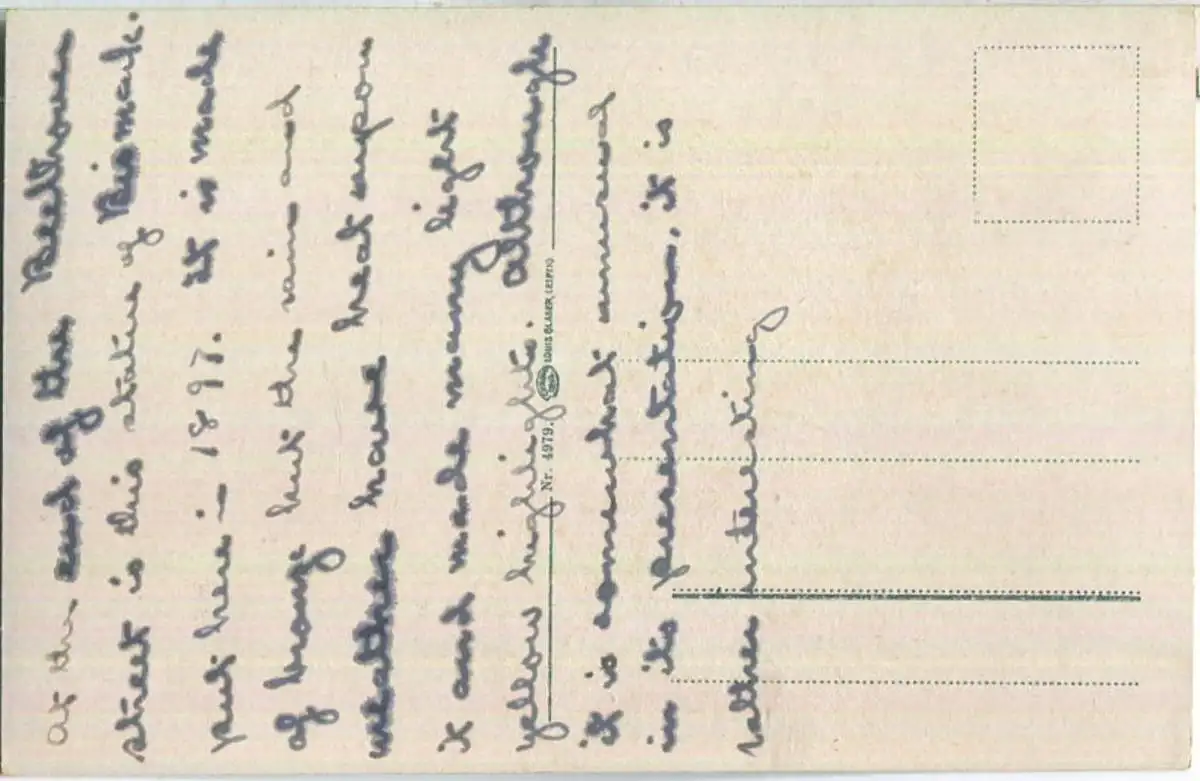 At the end of the Beethoven
street is this statue of Bismark.
put here in 1897. It is made
of bronze but the rain and
weather have beat upon
it and made many light
yellow highlights. Although
it is somewhat unusual
in its presentation, it is
rather interesting
Nr. 4979. LOUIS GLASER, LEIPZIG